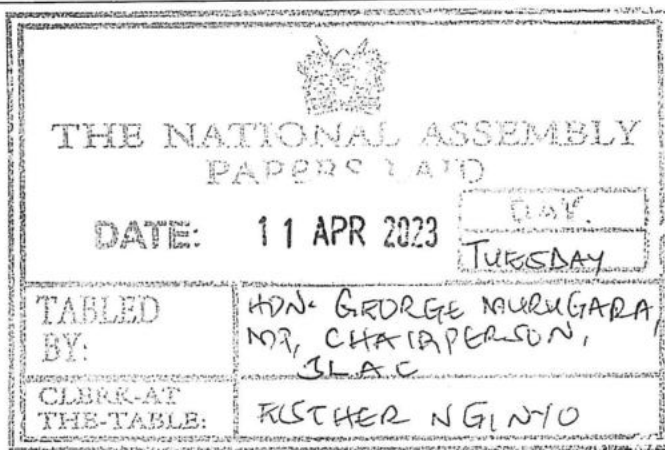 THE NATIONAL ASSEMBLY
PAPERS LAID
DATE: 11 APR 2023
DAY.
TUESDAY
TABLED BY:
HON. GEORGE MURUGARA,
MP, CHAIRPERSON,
JLAC
CLERK-AT THE-TABLE:
ESTHER NGINYO